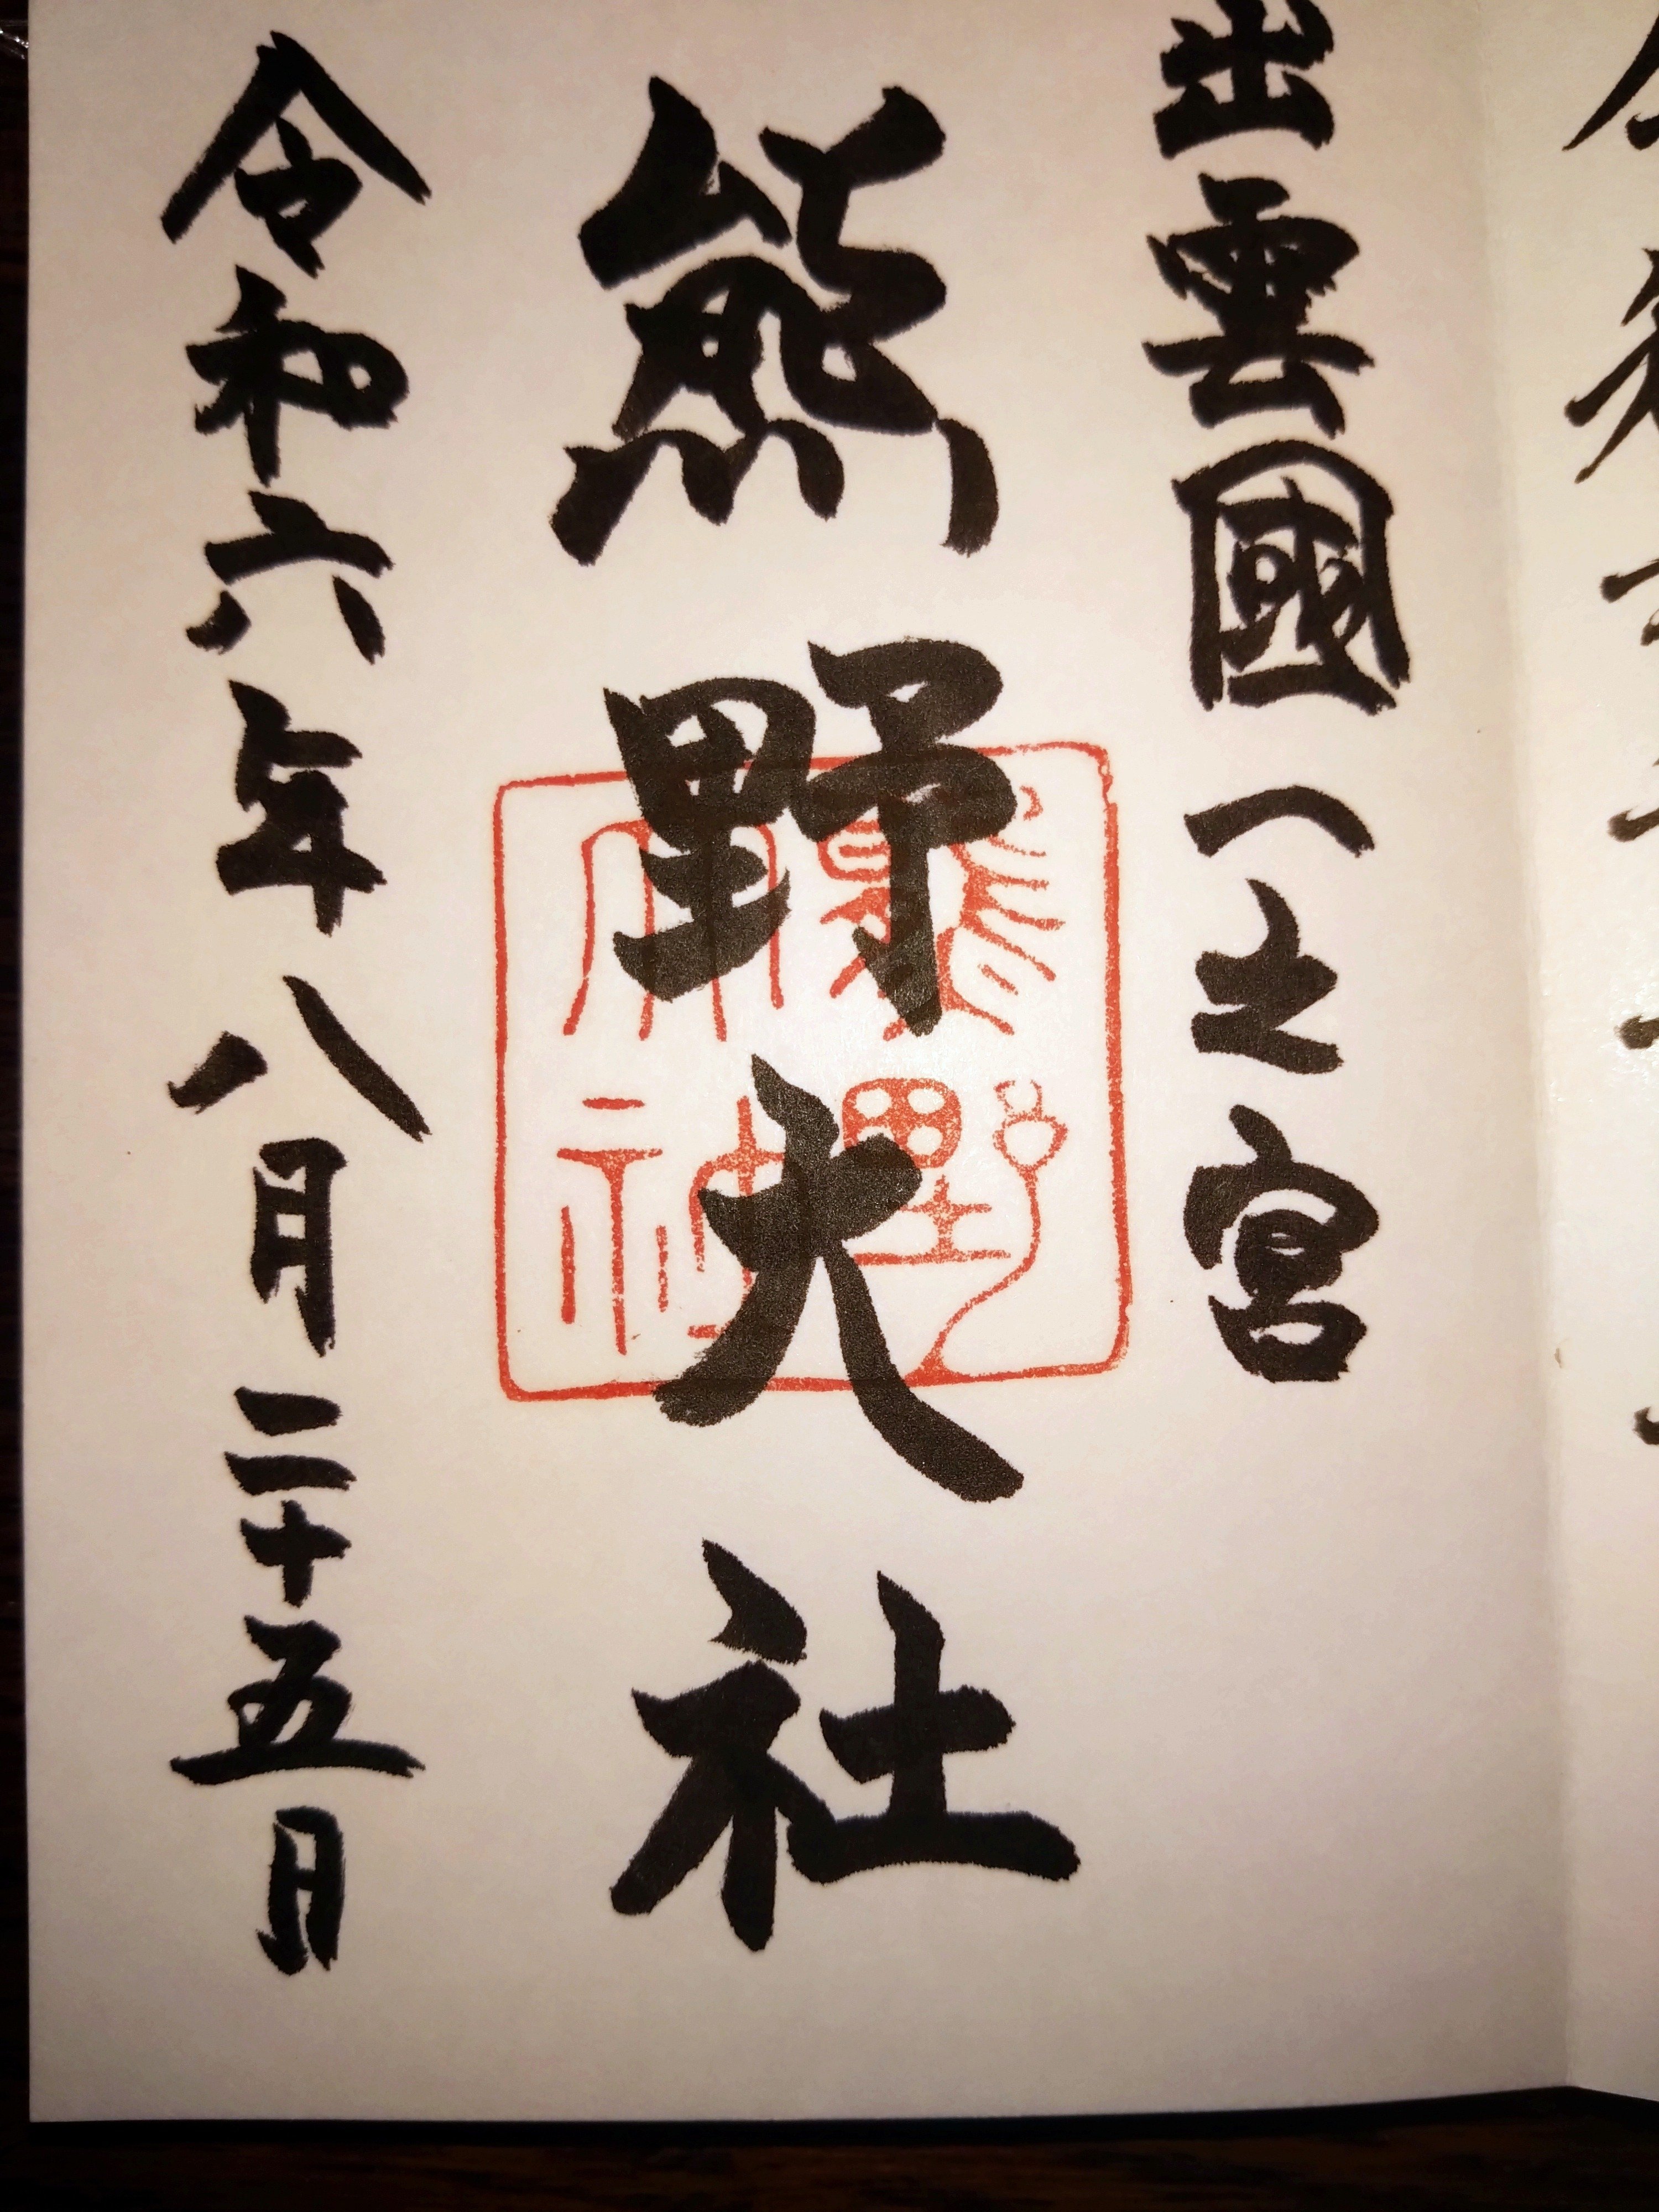 出雲國一之宮
熊野大社
熊野
大神
令和六年八月二十五日